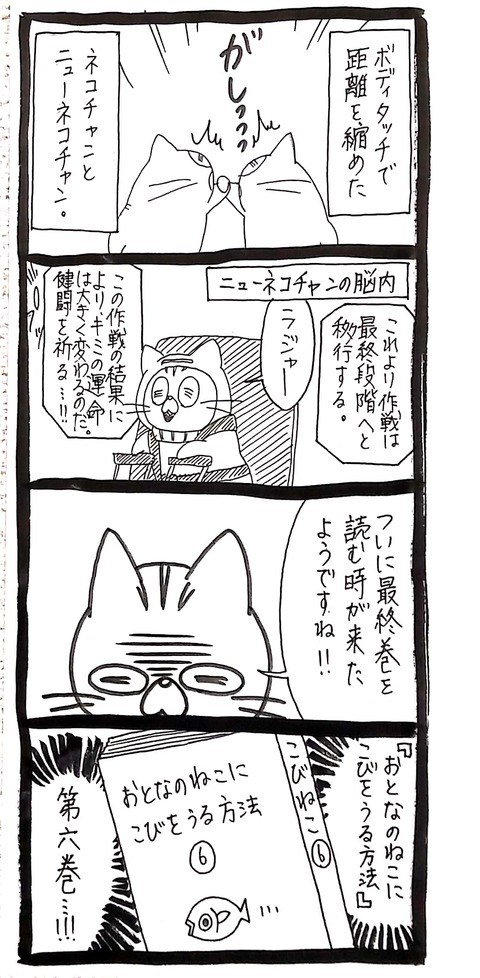 ボディタッチで
距離を縮めた
がしっっっ
ネコチャンと
ニューネコチャン。
ニューネコチャンの脳内
これより作戦は
最終段階へと
移行する。
ラジャー
この作戦の結果に
より、キミの運命
は大きく変わるのだ。
健闘を祈る…!!
ついに最終巻を
読む時が来た
ようですね!!
『おとなのねこに
こびをうる方法』
こびねこ⑥
おとなのねこに
こびをうる方法
⑥
第六巻…!!!